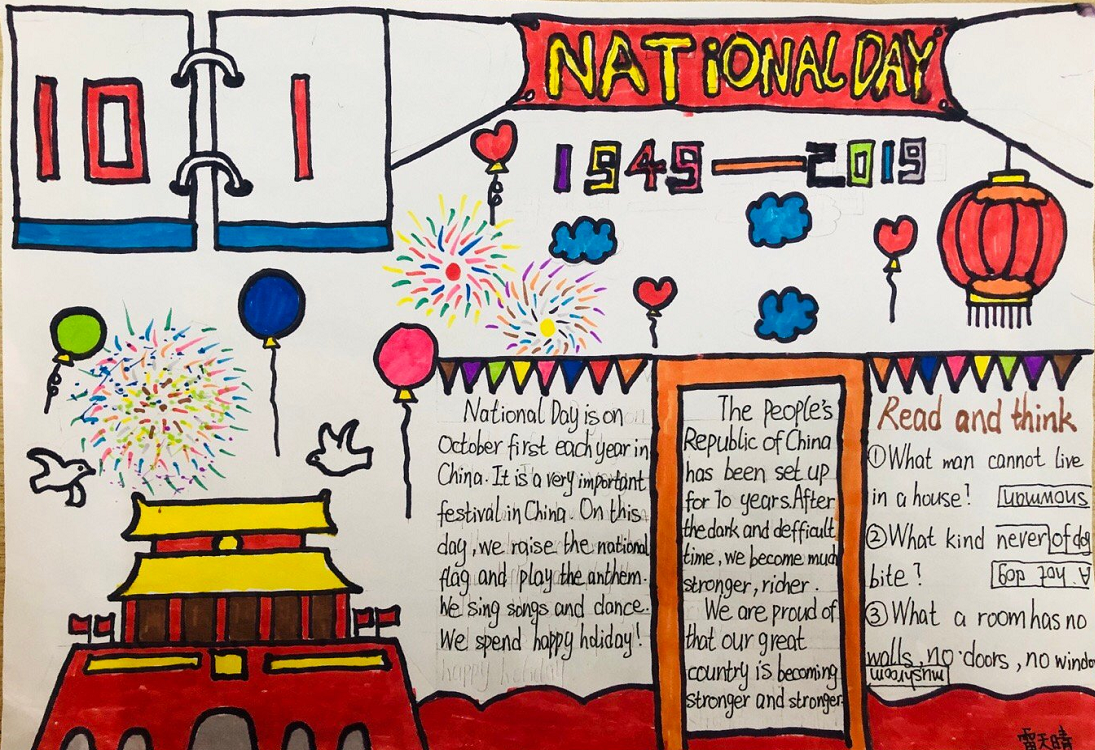 10 1
NATiONAL DAY
1949—2019
National Day is on
October first each year in
China. It is a very important
festival in China. On this
day, we raise the national
flag and play the anthem.
We sing songs and dance.
We spend happy holiday!
happy holiday
The People's
Republic of China
has been set up
for 70 years.After
the dark and defficult
time, we become much
stronger, richer.
We are proud of
that our great
country is becoming
stronger and stronger.
Read and think
①What man cannot live
in a house?
snowman
②What kind never of dog
bite?
A hot dog
③What a room has no
walls, no doors, no window
mushroom